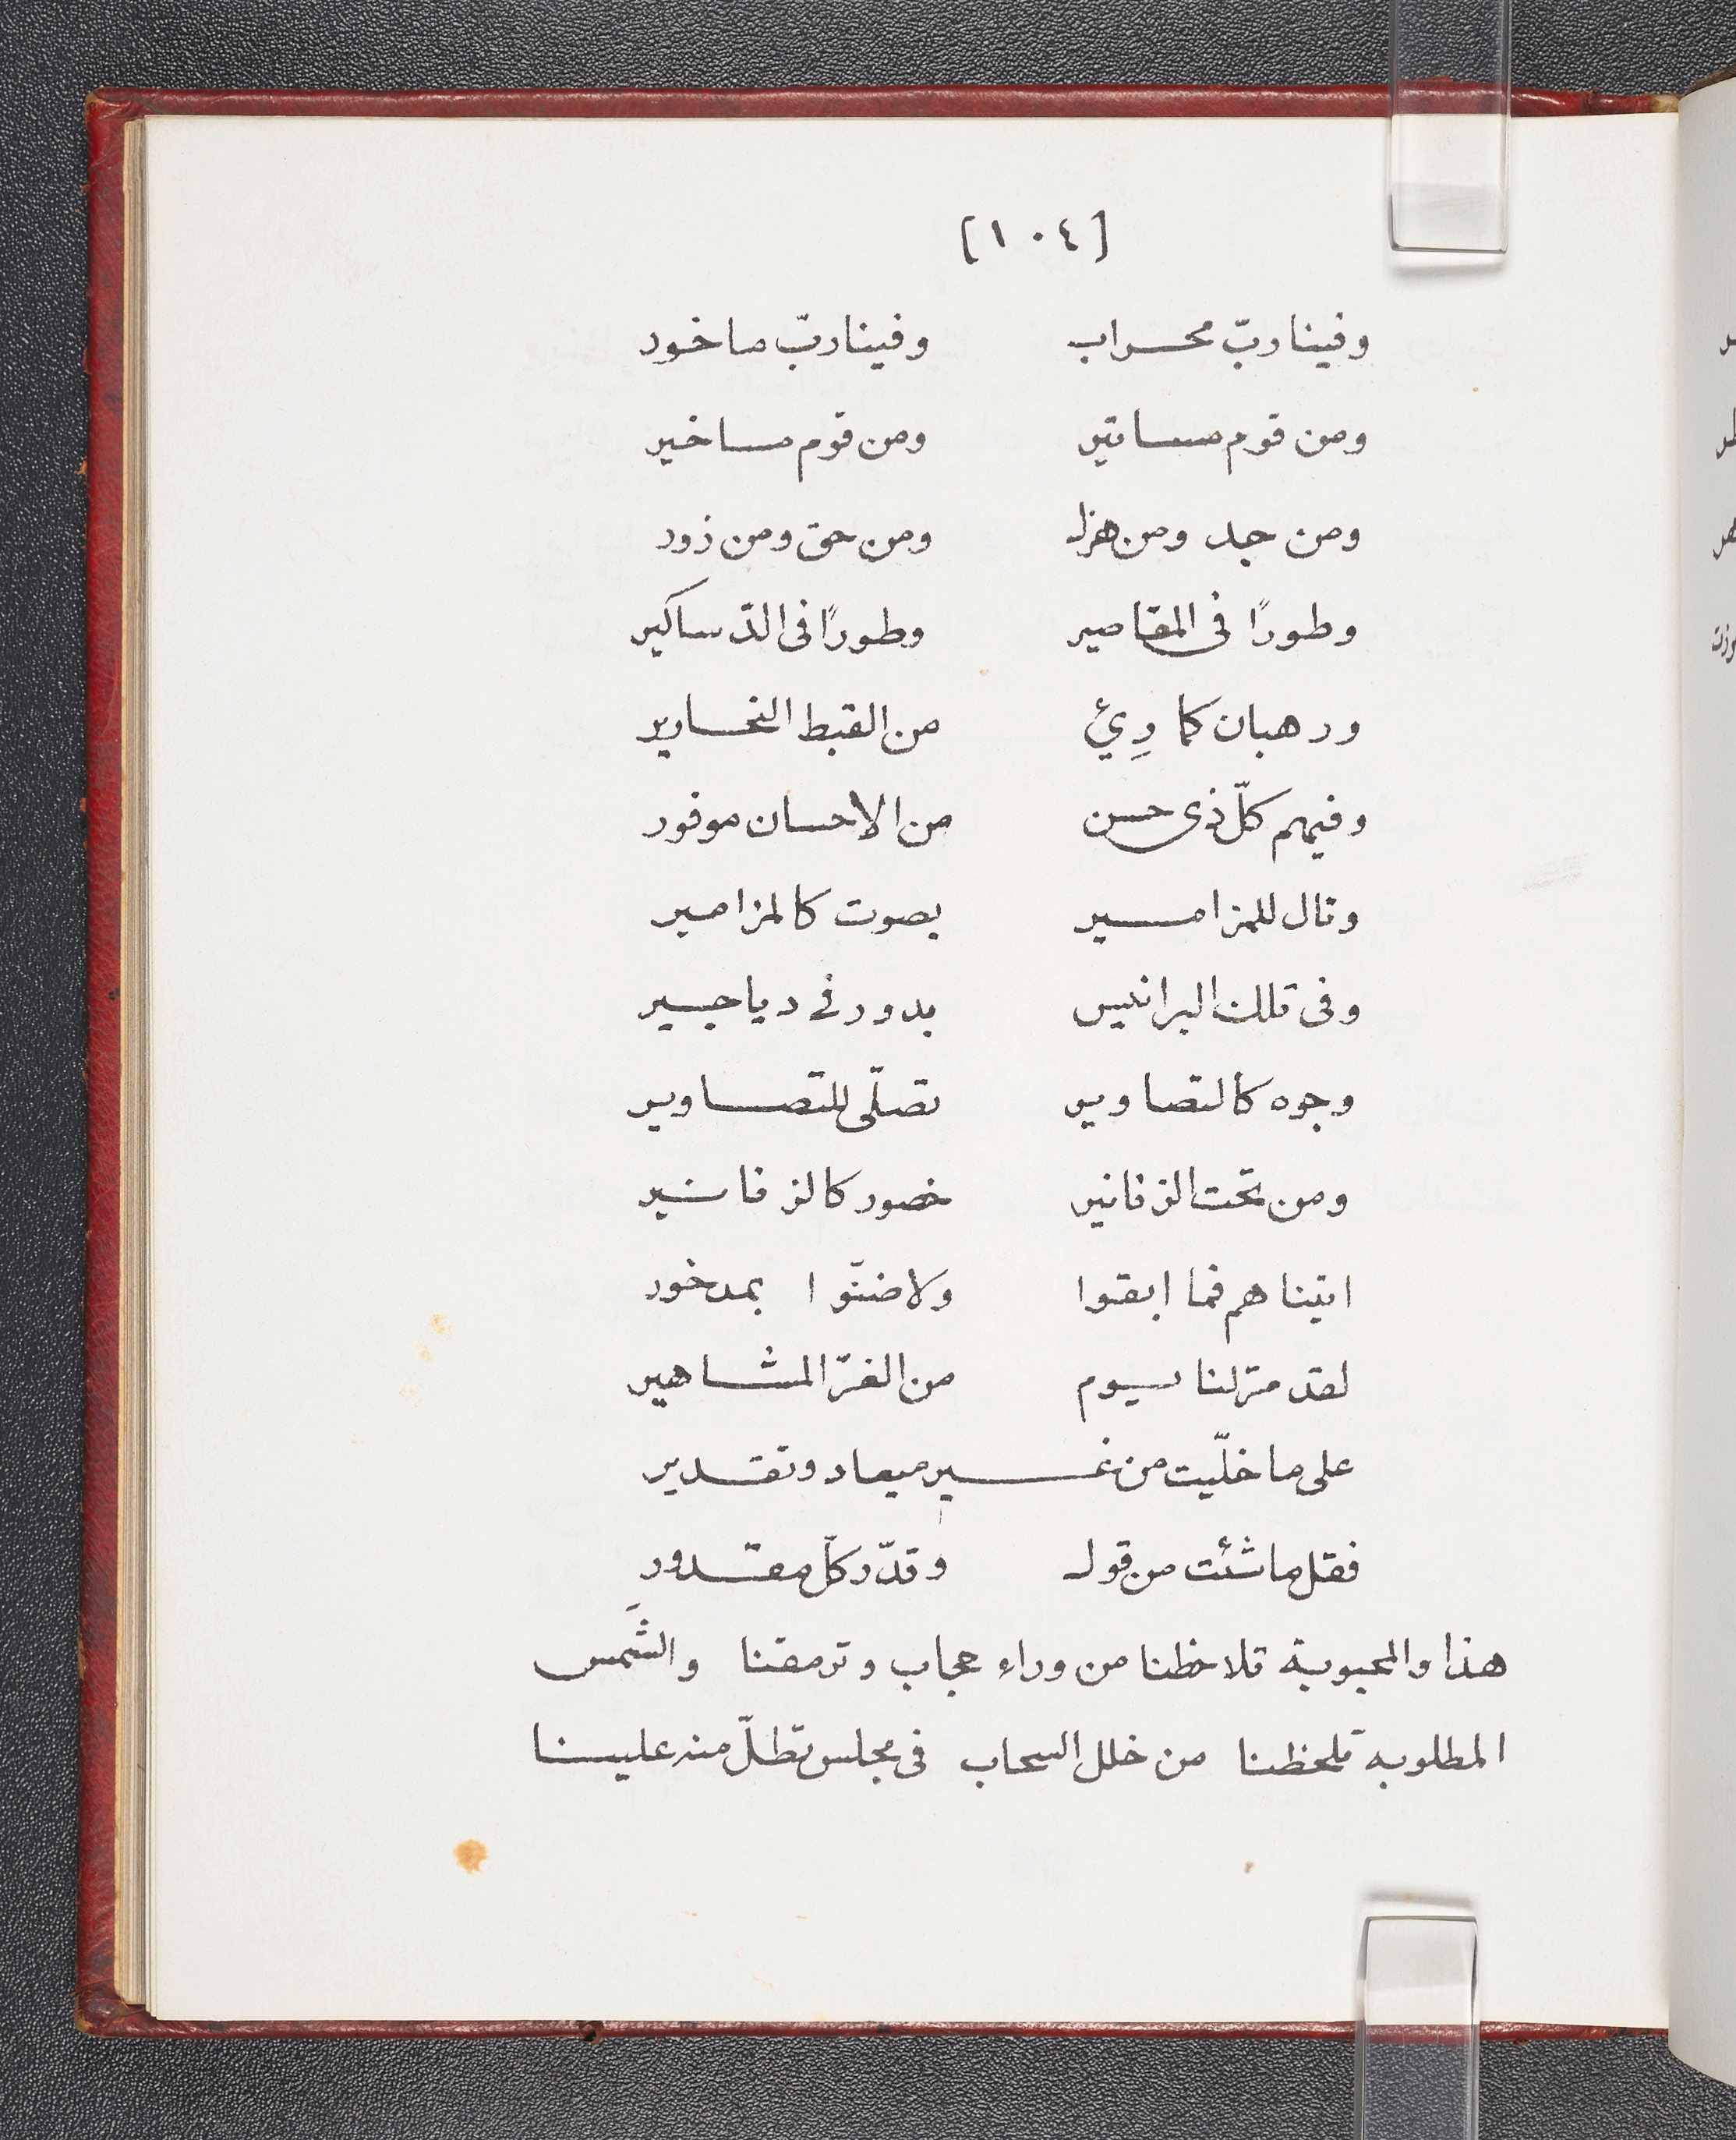 [١٠٤]
وفينا ربّ محراب وفينا ربّ ماخور
ومن قوم مساتير ومن قوم مساخير
ومن جد ومن هزل ومن حق ومن زور
وطورًا فى المقاصير وطورًا فى الدّساكير
ورهبان كما رِيْ من القبط النحارير
وفيهم كلّ ذى حسن من الاحسان موفور
وتال للمزامير بصوت كالمزامير
وفى تلك البرانيس بدور فى دياجير
وجوه كالتصاوير تصلّى للتصاوير
ومن تحت الزنانير خصور كالزنانير
اتيناهم فما ابقوا ولا ضنّوا بمدخور
لقد مرّ لنا يوم من الغرّ المشاهير
على ما خلّيت من غير ميعاد وتقدير
فقل ما شئت من قول وقدّر كلّ مقدور
هذا والمحبوبة تلاحظنا من وراء حجاب وترمقنا والشَّمس
المطلوبه تلحظنا من خلل السحاب فى مجلس تطلّ منه علينا